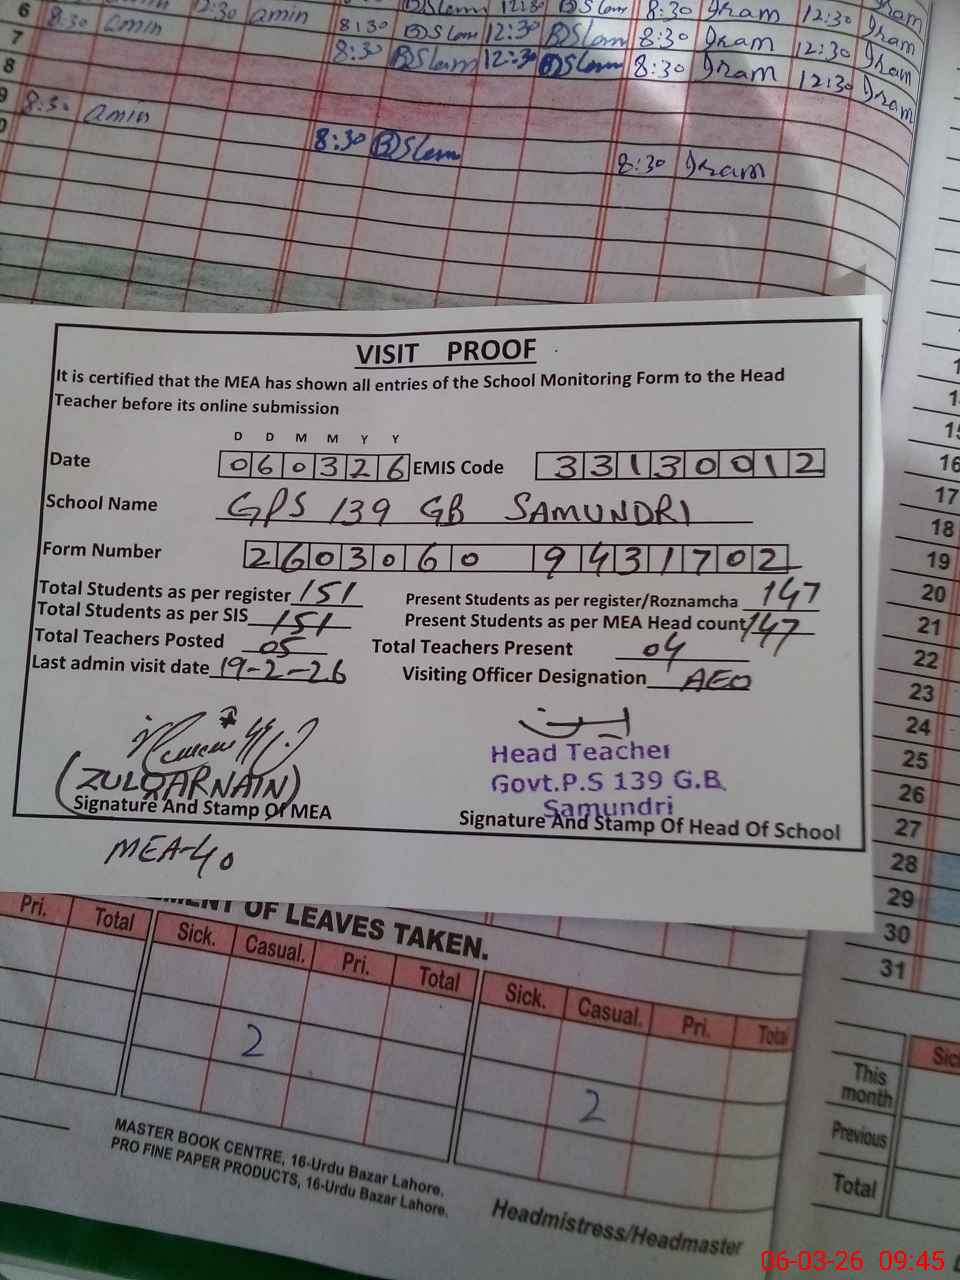 6 8:30 amin 12:30 amin 8:30 Islam 12:30 Islam 8:30 Ikram 12:30 Ikram
7 8:30 Islam 12:30 Islam 8:30 Ikram 12:30 Ikram
8
9 8:30 amin 8:30 Islam 8:30 Ikram
VISIT PROOF
It is certified that the MEA has shown all entries of the School Monitoring Form to the Head
Teacher before its online submission
D D M M Y Y
Date 060326 EMIS Code 33130012
School Name GPS 139 GB SAMUNDRI
Form Number 2603060 9431702
Total Students as per register 151 Present Students as per register/Roznamcha 147
Total Students as per SIS 151 Present Students as per MEA Head count 147
Total Teachers Posted 05 Total Teachers Present 04
Last admin visit date 19-2-26 Visiting Officer Designation AEO
Head Teacher
Govt.P.S 139 G.B.
Samundri
(ZULQARNAIN)
Signature And Stamp Of MEA Signature And Stamp Of Head Of School
MEA-40
OF LEAVES TAKEN.
Pri. Total Sick. Casual. Pri. Total Sick. Casual. Pri. Total
2 2
MASTER BOOK CENTRE, 16-Urdu Bazar Lahore.
PRO FINE PAPER PRODUCTS, 16-Urdu Bazar Lahore.
Headmistress/Headmaster
16
17
18
19
20
21
22
23
24
25
26
27
28
29
30
31
This
month
Previous
Total
06-03-26 09:45